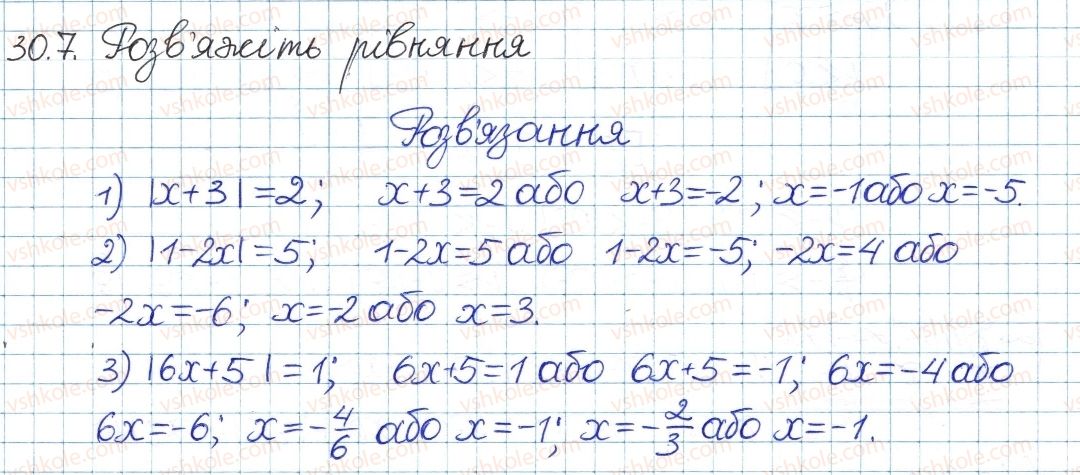 30.7. Розв'яжіть рівняння
Розв'язання
1) |x+3|=2; x+3=2 або x+3=-2; x=-1 або x=-5.
2) |1-2x|=5; 1-2x=5 або 1-2x=-5; -2x=4 або
-2x=-6; x=-2 або x=3.
3) |6x+5|=1; 6x+5=1 або 6x+5=-1; 6x=-4 або
6x=-6; x=-4/6 або x=-1; x=-2/3 або x=-1.